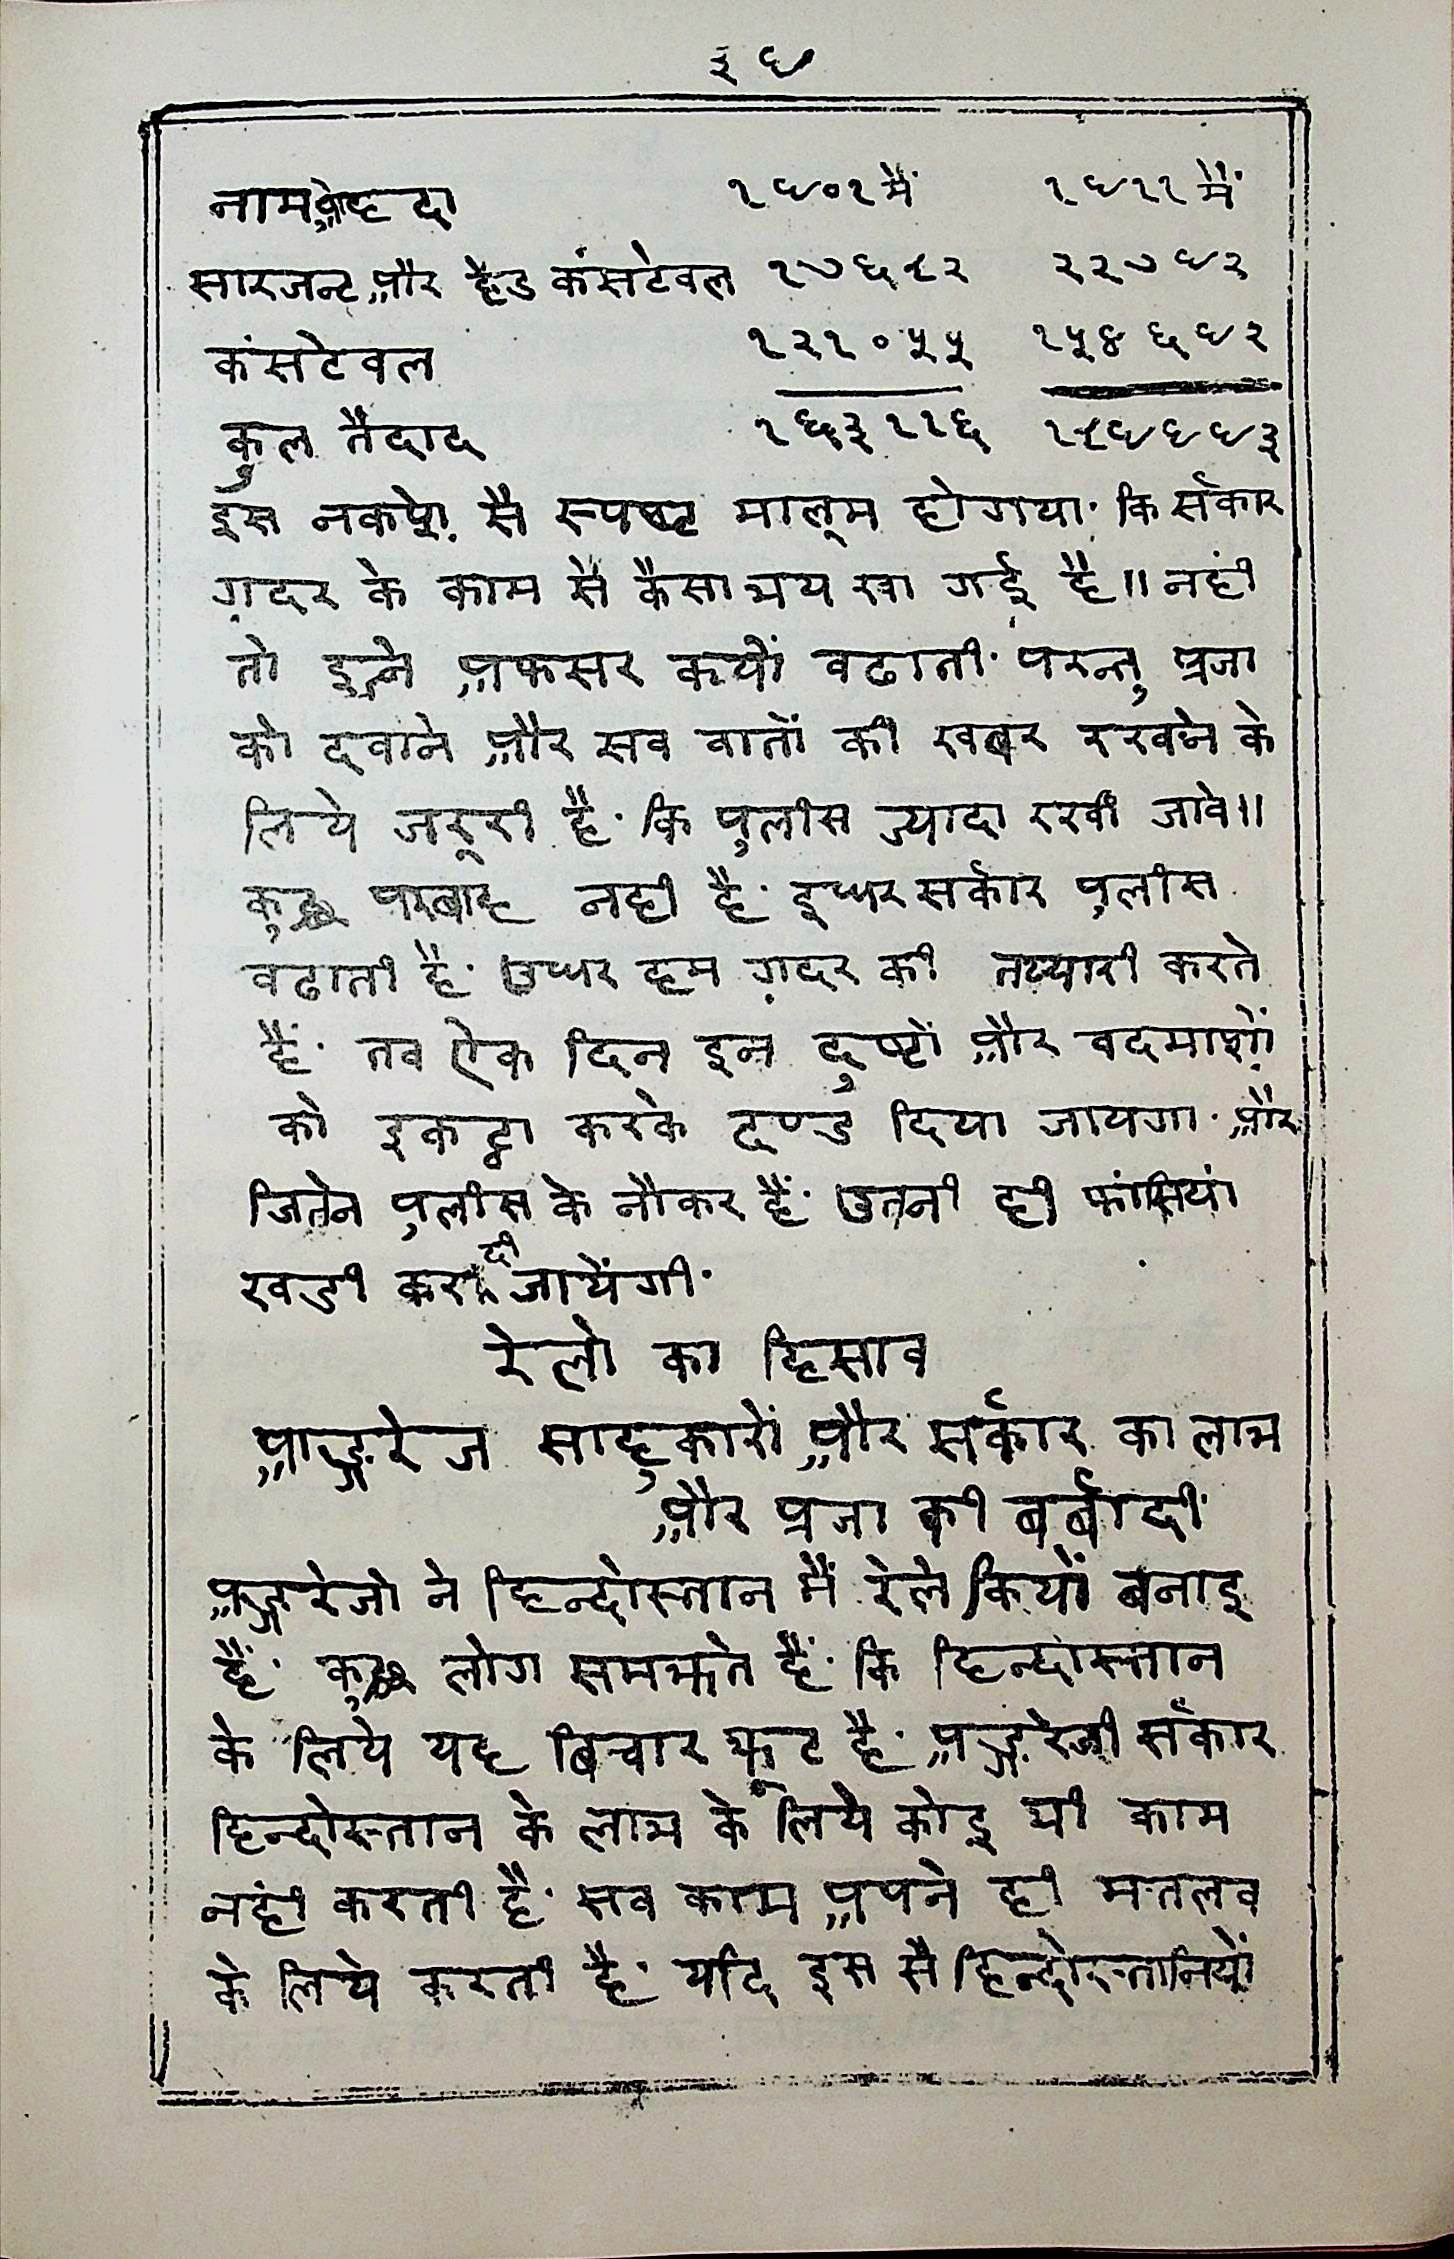 ३९
नाम ओहदा १९०१ मैं १९११ मैं
सारजन्ट और हैड कंसटेवल १७६८२ २२७९२
कंसटेवल १२१०५५ १५४६९२
कुल तैदाद १६३११६ १८९९९३
इस नकशे से स्पष्ट मालूम होगया· कि र्सकार
ग़दर के काम सै कैसा भय खा गई है॥ नहीं
तो इत्ने अफसर कयों वढाती· परन्तु प्रजा
को दवाने और सव वातों की खबर रखने के
लिये जरूरी है· कि पुलीस ज्यादा रखी जावे॥
कुछ परबाह नही है· इधर सर्कार पुलीस
वढाती है· उधर हम ग़दर की तय्यारी करते
हैं· तव ऐक दिन इन दुष्टों और वदमाशों
को इकट्ठा करके दण्ड दिया जायगा· और
जितने पुलीस के नौकर हैं· उतनी ही फांसियां
खडी कर दी जायेंगी·
रेलो का हिसाव
आङ्गरेज साहुकारों और सर्कार का लाभ
और प्रजा की बर्बादी
अङ्गरेजो ने हिन्दोस्तान मैं रेले कियों बनाइ
हैं· कुछ लोग समझते हैं· कि हिन्दोस्तान
के लिये यह बिचार झूट है· अङ्गरेजी र्सकार
हिन्दोस्तान के लाभ के लिये कोइ भी काम
नहीं करती है· सव काम अपने ही मतलव
के लिये करती है· यदि इस सै हिन्दोस्तानियों